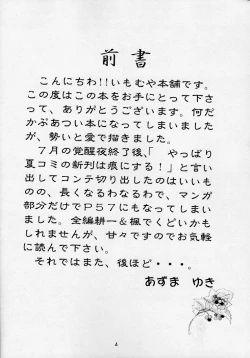 前書
こんにちわ!!いもむや本舗です。
この度はこの本をお手にとって下さ
って、ありがとうございます。何だ
かぶあつい本になってしまいました
が、勢いと愛で描きました。
７月の覚醒夜終了後、「やっぱり
夏コミの新刊は痕にする！」と言い
出してコンテ切り出したのはいいも
のの、長くなるわなるわで、マンガ
部分だけでＰ５７にもなってしまい
ました。全編耕一＆楓でくどいかも
しれませんが、甘々ですのでお気軽
に読んで下さい。
それではまた、後ほど・・・。
あずま ゆき
4